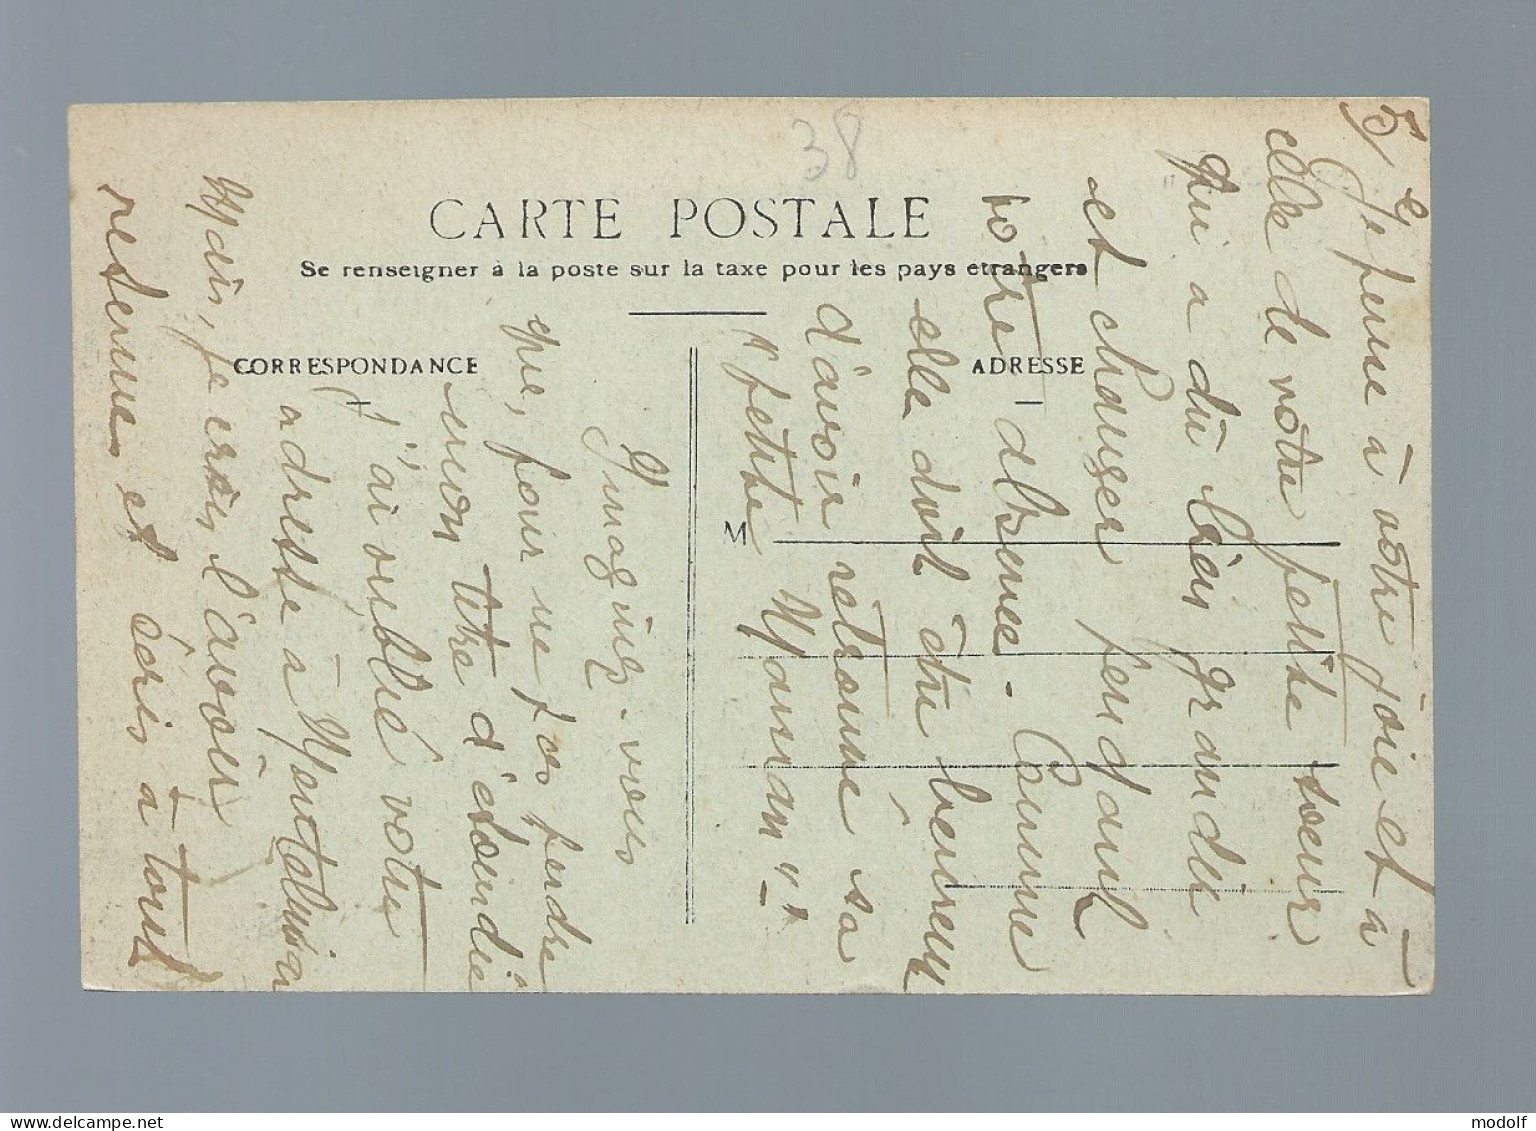 38
CARTE POSTALE
Se renseigner à la poste sur la taxe pour les pays etrangers
CORRESPONDANCE
ADRESSE
M
5/
Je pense à votre joie et à
celle de votre petite soeur
qui a dû bien grandir
et changer pendant
votre absence. Comme
elle doit être heureuse
d'avoir retrouvé sa
"petite Maman". -
Imaginez-vous
que, pour ne pas perdre
mon titre d'étourdie
j'ai oublié votre
adresse à
Mais, je crois l'avoir
retenue et écris à tout
modolf